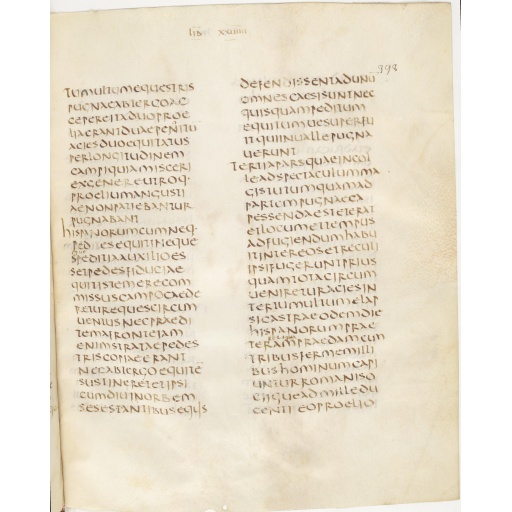 LIB XXVIIII
398
TUMULTUMEQUESTRIS
PUGNACABIERCOAC
CEPERETADUOPROE
LIAERANTDUAEPENITU
ACIESDUOEQUITATUS
PERLONGITUDINEM
CAMPIQUIAMISCERI
EXGENEREUTROQ·
PROELIUMANGUSTI
AENONPATIEBANTUR
PUGNABANT
HISPANORUMCUMNEQ·
PEDITESEQUITINEQUE
EQUESPEDITIAUXILIOES
SETPEDESFIDUCIAE
QUITISTEMERECOM
MISSUSCAMPOCAEDE
RETUREQUESCIRCUM
UENIUSNECPRAEDI
TEMAFRONTEIAM
ENIMSTRATAEPEDES
TRISCOPIAEERANT
NECABTERGOEQUITE
SUSTINERETETIPSI
CUMDIUINORBEM
SESESTANTIBUSEQUIS
DEFENDISSENTADUNU
OMNESCAESISUNTNEC
QUISQUAMPEDITUM
EQUITUMUESUPERFU
ITQUIINUALLEPUGNA
UERUNT
TERTIAPARSQUAEINCOL
LEADSPECTACULUMMA
GISTUTUMQUAMAD
PARTEMPUGNAECA
PESSENDAESTETERAT
ETLOCUMETTEMPUS
ADFUGIENDUMHABU
ITINTEREOSETREGULI
IPSIFUGERUNTPRIUS
QUAMTOTACIRCUM
UENIRETURACIESIN
TERTUMULTUMELAP
SICASTRAEODEMDIE
HISPANORUMPRAE
TERAMPRAEDAMCUM
TRIBUSFERMEMILLI
BUSHOMINUMCAPI
UNTURROMANISO
CIIQUEADMILLEDU
CENTIEOPROELIO